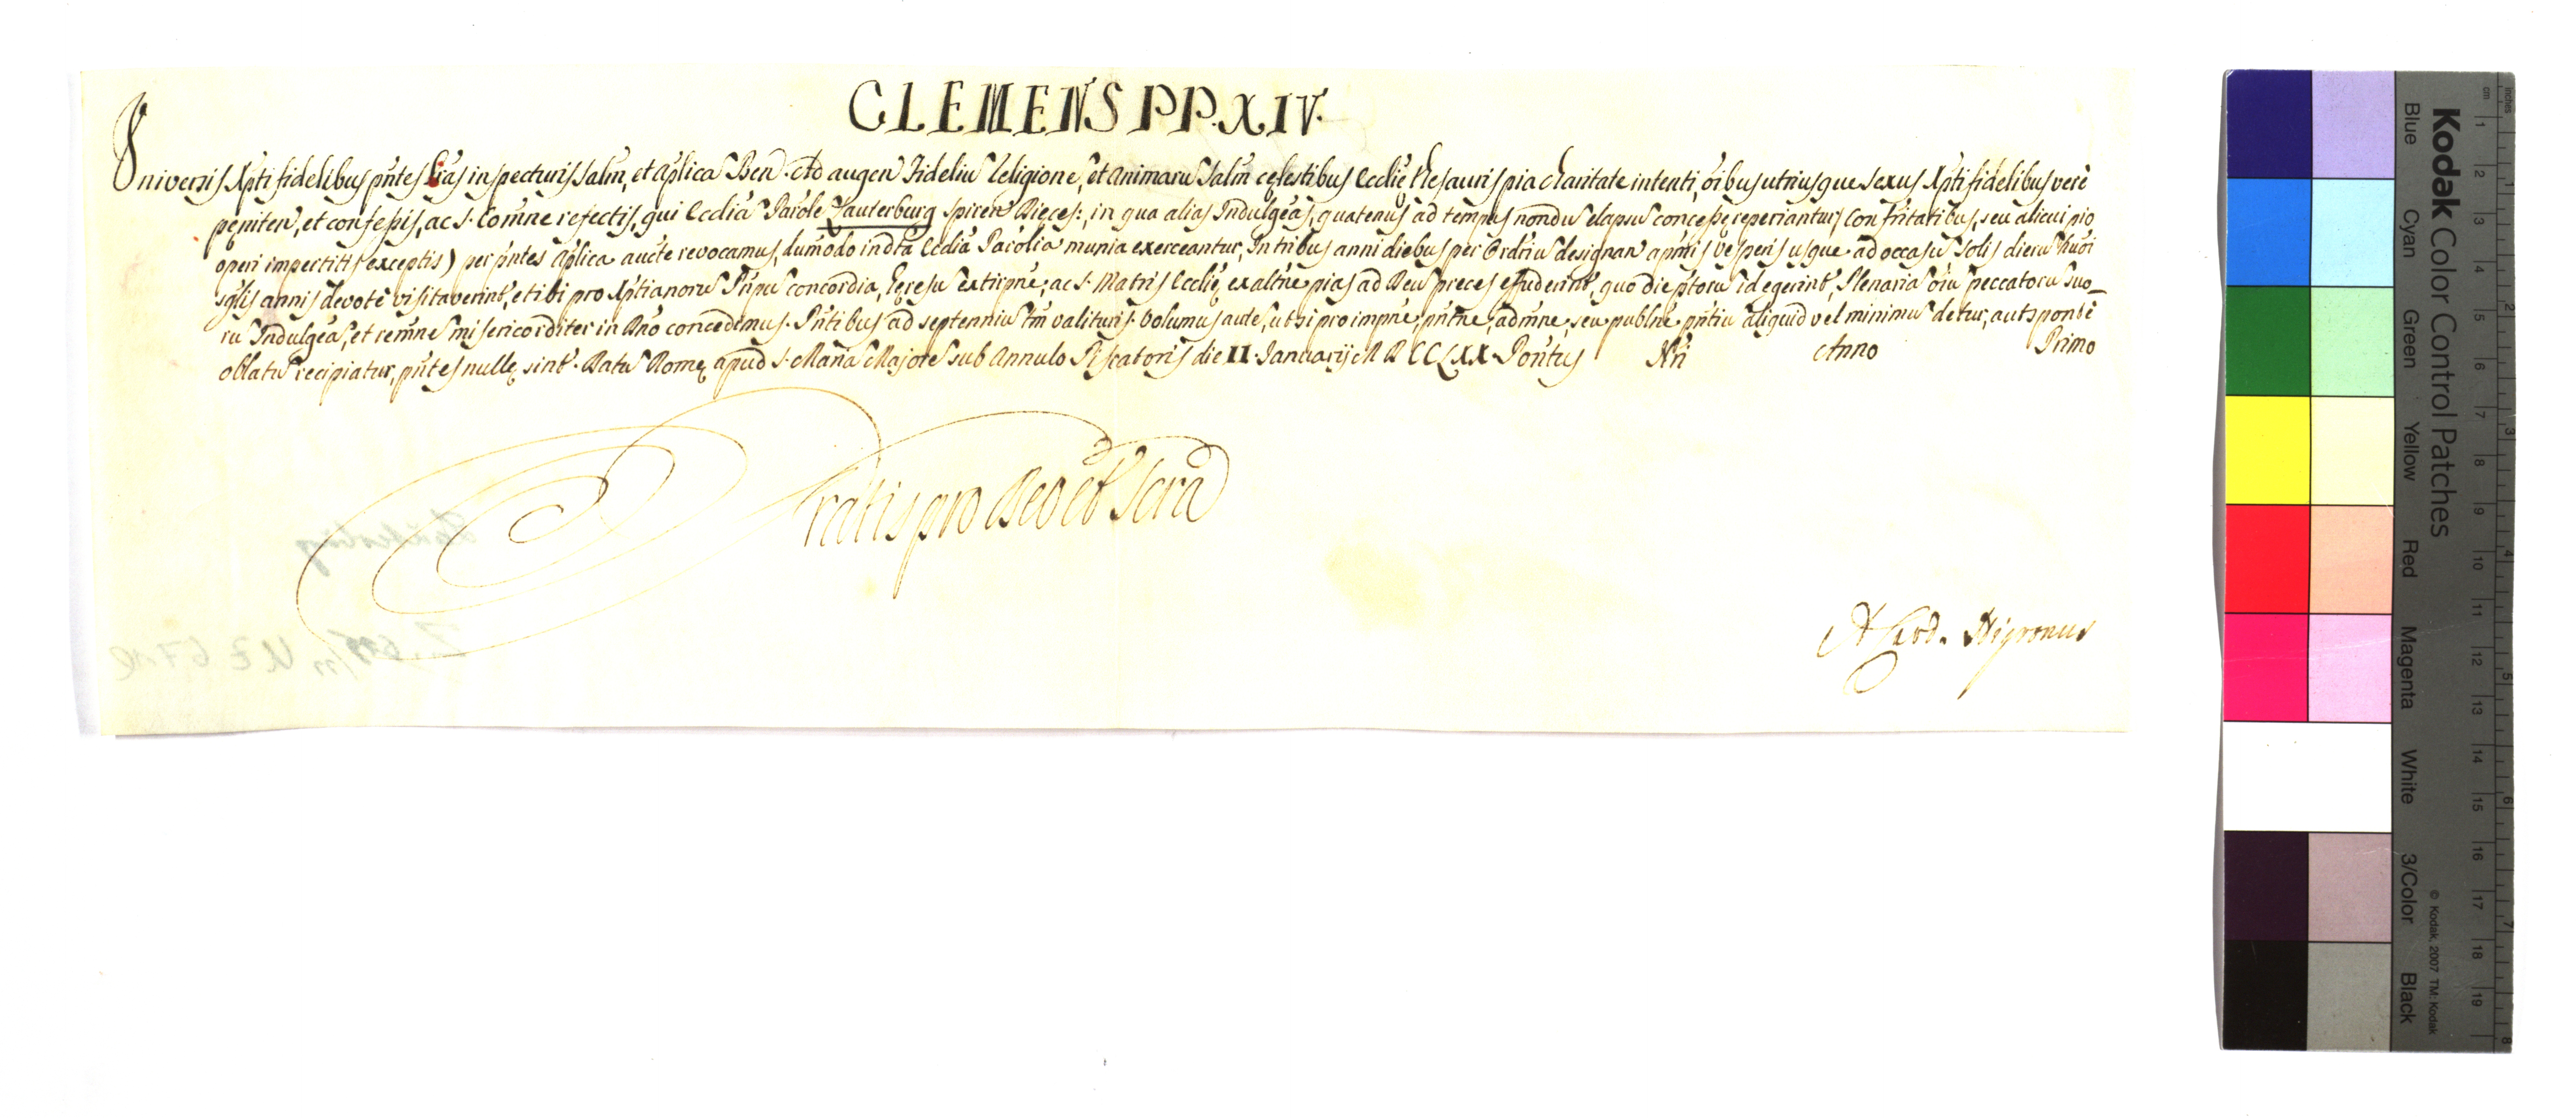 CLEMENS PP. XIV.
Universis Xpti fidelibus pñtes Lras inspecturis Salm̃, et aplica Ben. Ad augen Fideliu Religione, et animaru Salm̃ celestibus Ecclie thesauris pia charitate intenti, oibus utriusque sexus Xpti fidelibus verè
peniten, et confessis, ac S. Com̃ne refectis, qui Ecclia Parole Lauterburg Spiren Dieces:, in qua alias Indulgeas, quatenus ad tempus nondu elapsu concesse reperiantur (Confritatibus, seu alicui pio
operi impertitis exceptis) per pñtes aplica aucte revocamus, dum̃odo in dta Ecclia Parolia munia exerceantur, In tribus anni diebus per Ordriu designan a pmis vesperis usque ad occasu Solis dieru huoi
sglis annis devotè visitaverint, et ibi pro Xptianoru Pnpu concordia, heresu extirpne, ac S. Matris Ecclie exaltne pias ad Deu preces effuderint, quo die ptoru id egerint, Plenaria oiu peccatoru suo_
ru Indulgea, et remne misericorditer in Dno concedimus. Pñtibus ad septenniu tm̃ valituris. Volumus aute, ut si pro impne, pñtne, admne, seu publne pñtiu aliquid vel minimu detur, aut spontè
oblatu recipiatur, pñtes nulle sint. Datu Rome apud S. Maria Majore sub Annulo Piscatoris die II. Januarij MDCCLXX. Pontus Nri Anno Primo
Gratis pro Deo et Scra
A. Card. Nigronus
Kodak Color Control Patches
Blue Cyan Green Yellow Red Magenta White 3/Color Black
© Kodak, 2007 TM: Kodak
inches 1 2 3 4 5 6 7 8
cm 1 2 3 4 5 6 7 8 9 10 11 12 13 14 15 16 17 18 19